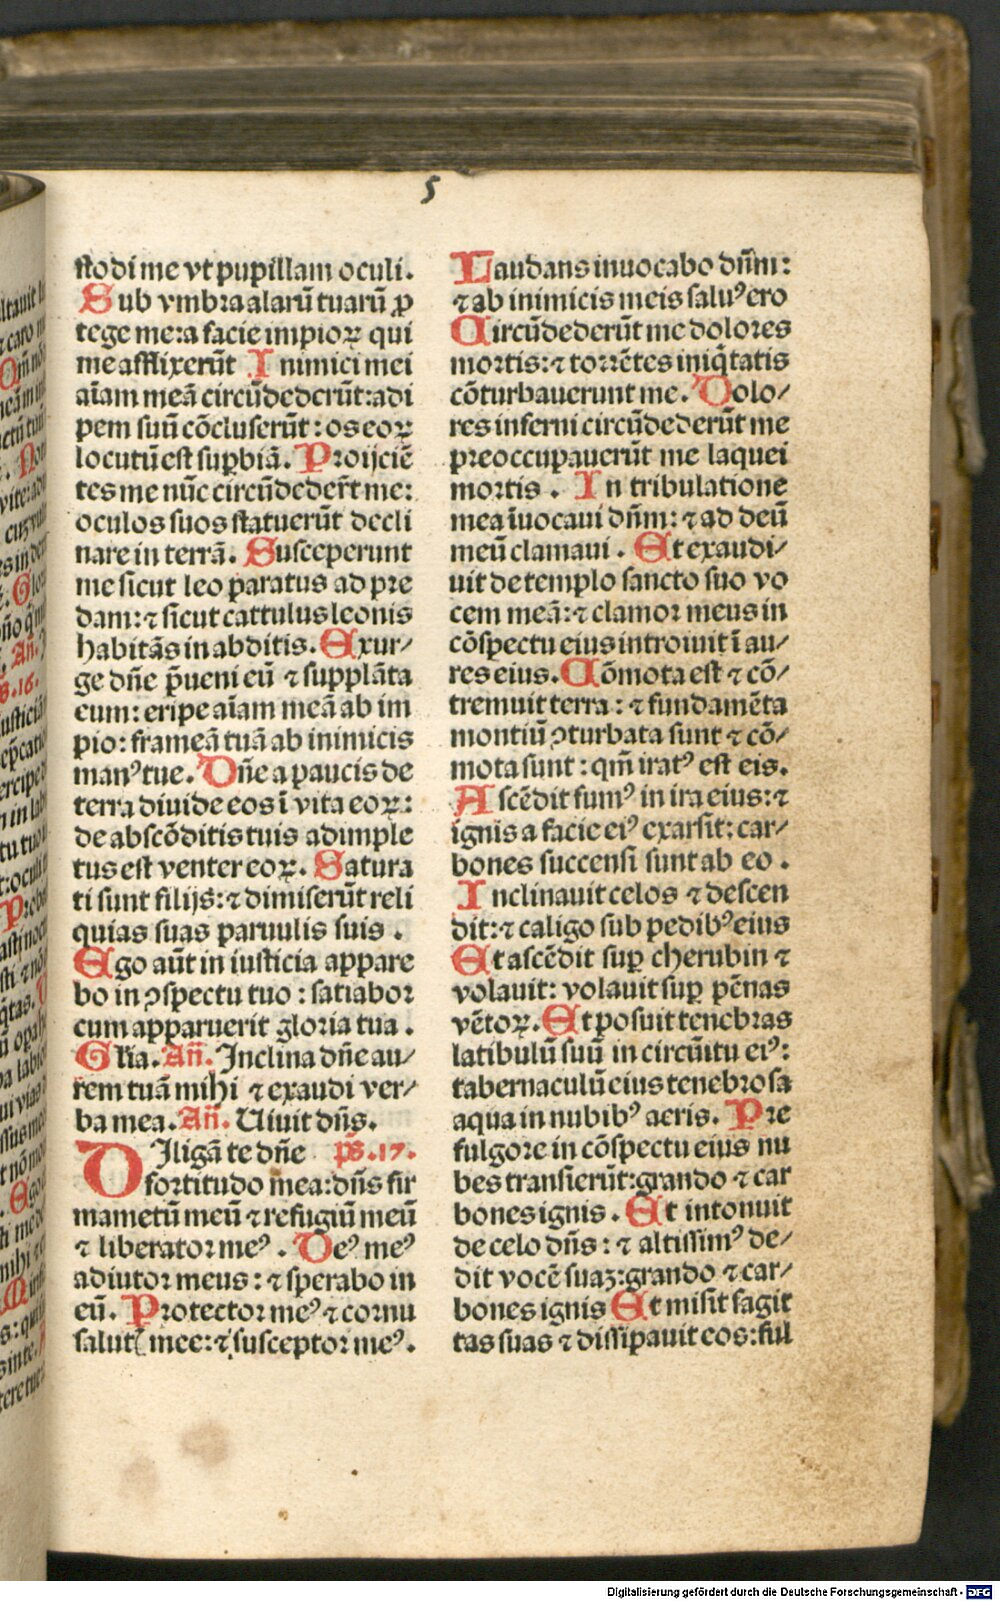 5
stodi me vt pupillam oculi.
Sub vmbra alarū tuarū ꝓ
tege me:a facie impioꝝ qui
me afflixerūt Inimici mei
aīam meā circūdederūt:adi
pem suū cōcluserūt: os eoꝝ
locutū est suꝑbiā. Proijciē
tes me nūc circūdeder̄t me:
oculos suos statuerūt decli
nare in terrā. Susceperunt
me sicut leo paratus ad pre
dam:⁊ sicut cattulus leonis
habitās in abditis. Exur⸗
ge dn̄e p̄ueni eū ⁊ supplāta
eum: eripe aīam meā ab im
pio: frameā tuā ab inimicis
manꝰ tue. Dn̄e a paucis de
terra diuide eos ī vita eoꝝ:
de abscōditis tuis adimple
tus est venter eoꝝ. Satura
ti sunt filijs:⁊ dimiserūt reli
quias suas paruulis suis .
Ego aūt in iusticia appare
bo in ꝯspectu tuo : satiabor
cum apparuerit gloria tua .
Gl̄ia. An̄. Inclina dn̄e au⸗
rem tuā mihi ⁊ exaudi ver⸗
ba mea. An̄. Uiuit dn̄s.
DIligā te dn̄e ps̄.17.
fortitudo mea:dn̄s fir
mametū meū ⁊ refugiū meū
⁊ liberator meꝰ . Deꝰ meꝰ
adiutor meus: ⁊ sperabo in
eū. Protector meꝰ ⁊ cornu
salutꝭ mee:⁊ susceptor meꝰ.
Laudans inuocabo dn̄m:
⁊ ab inimicis meis saluꝰ ero
Circūdederūt me dolores
mortis:⁊ torrētes iniq̄tatis
cōturbauerunt me. Dolo⸗
res inferni circūdederūt me
preoccupauerūt me laquei
mortis . In tribulatione
mea īuocaui dn̄m: ⁊ ad deū
meū clamaui . Et exaudi⸗
uit de templo sancto suo vo
cem meā:⁊ clamor meus in
cōspectu eius introiuit ī au⸗
res eius. Cōmota est ⁊ cō⸗
tremuit terra : ⁊ fundamēta
montiū ꝯturbata sunt ⁊ cō⸗
mota sunt : qm̄ iratꝰ est eis.
Ascēdit fumꝰ in ira eius:⁊
ignis a facie eiꝰ exarsit: car⸗
bones succensi sunt ab eo .
Inclinauit celos ⁊ descen
dit:⁊ caligo sub pedibꝰ eius
Et ascēdit suꝑ cherubin ⁊
volauit: volauit suꝑ pēnas
vētoꝝ. Et posuit tenebras
latibulū suū in circūitu eiꝰ:
tabernaculū eius tenebrosa
aqua in nubibꝰ aeris. Pre
fulgore in cōspectu eius nu
bes transierūt:grando ⁊ car
bones ignis . Et intonuit
de celo dn̄s : ⁊ altissimꝰ de⸗
dit vocē suaꝫ:grando ⁊ car⸗
bones ignis Et misit sagit
tas suas ⁊ dissipauit eos:ful
Digitalisierung gefördert durch die Deutsche Forschungsgemeinschaft - DFG